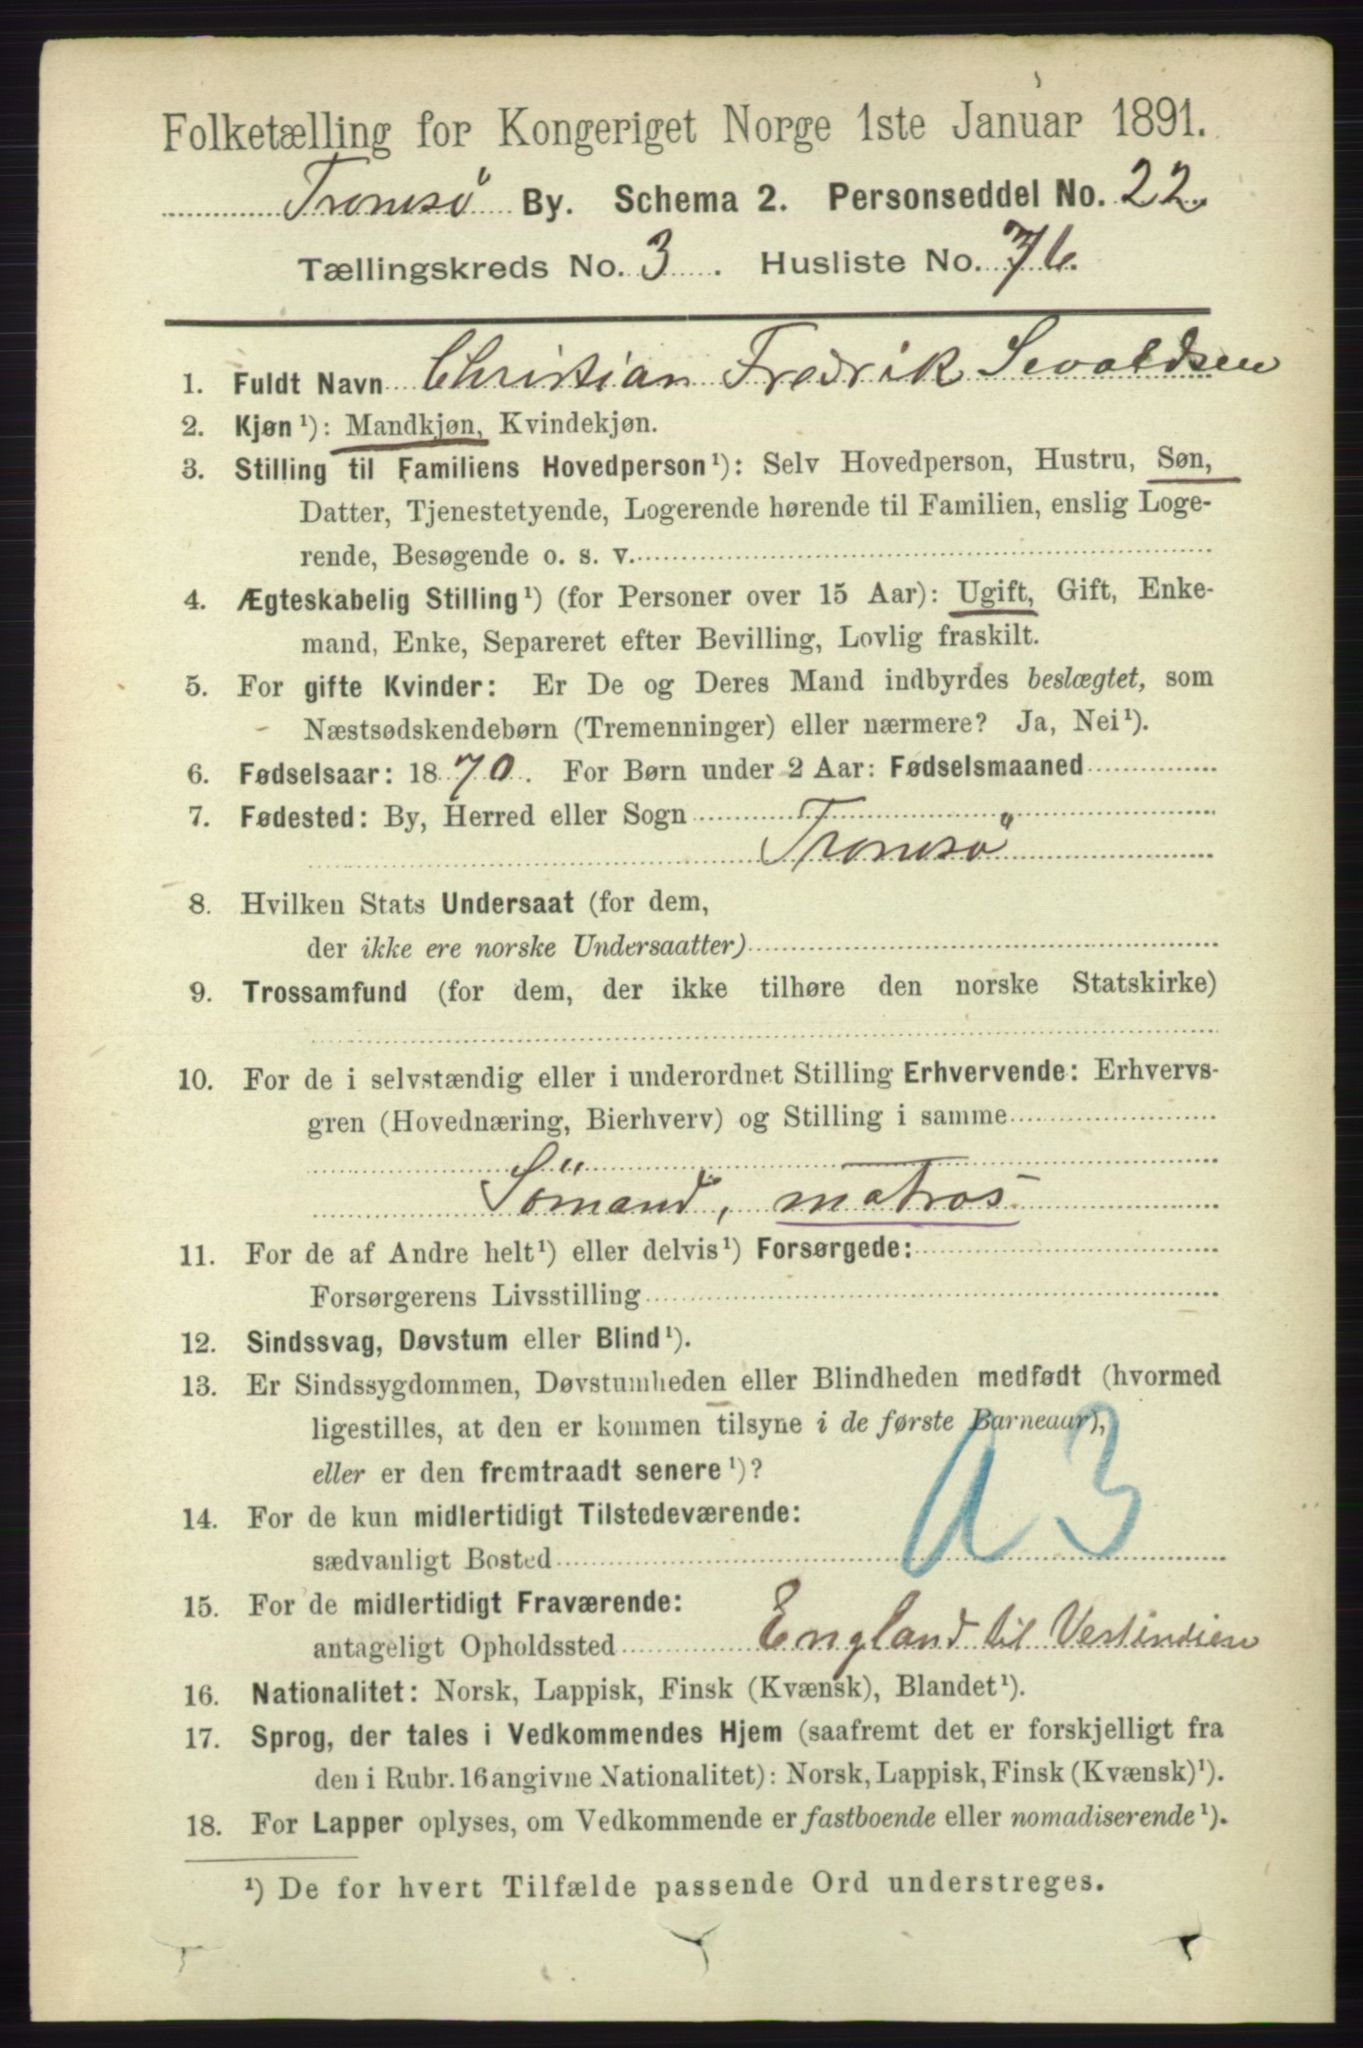 Folketælling for Kongeriget Norge 1ste Januar 1891.
Tromsö By. Schema 2. Personseddel No. 22.
Tællingskreds No. 3. Husliste No. 76.
1. Fuldt Navn Christian Fredrik Sevaldsen
2. Kjøn¹): Mandkjøn, Kvindekjøn.
3. Stilling til Familiens Hovedperson¹): Selv Hovedperson, Hustru, Søn,
Datter, Tjenestetyende, Logerende hørende til Familien, enslig Loge-
rende, Besøgende o. s. v.
4. Ægteskabelig Stilling¹) (for Personer over 15 Aar): Ugift, Gift, Enke-
mand, Enke, Separeret efter Bevilling, Lovlig fraskilt.
5. For gifte Kvinder: Er De og Deres Mand indbyrdes beslægtet, som
Næstsødskendebørn (Tremenninger) eller nærmere? Ja, Nei¹).
6. Fødselsaar: 1870. For Børn under 2 Aar: Fødselsmaaned
7. Fødested: By, Herred eller Sogn
Tromsö
8. Hvilken Stats Undersaat (for dem,
der ikke ere norske Undersaatter)
9. Trossamfund (for dem, der ikke tilhøre den norske Statskirke)
10. For de i selvstændig eller i underordnet Stilling Erhvervende: Erhvervs-
gren (Hovednæring, Bierhverv) og Stilling i samme
Sömand, matros
11. For de af Andre helt¹) eller delvis¹) Forsørgede:
Forsørgerens Livsstilling
12. Sindssvag, Døvstum eller Blind¹).
13. Er Sindssygdommen, Døvstumheden eller Blindheden medfødt (hvormed
ligestilles, at den er kommen tilsyne i de første Barneaar),
eller er den fremtraadt senere¹)?
a3
14. For de kun midlertidigt Tilstedeværende:
sædvanligt Bosted
15. For de midlertidigt Fraværende:
antageligt Opholdssted England til Vestindien
16. Nationalitet: Norsk, Lappisk, Finsk (Kvænsk), Blandet¹).
17. Sprog, der tales i Vedkommendes Hjem (saafremt det er forskjelligt fra
den i Rubr. 16 angivne Nationalitet): Norsk, Lappisk, Finsk (Kvænsk)¹).
18. For Lapper oplyses, om Vedkommende er fastboende eller nomadiserende¹).
¹) De for hvert Tilfælde passende Ord understreges.